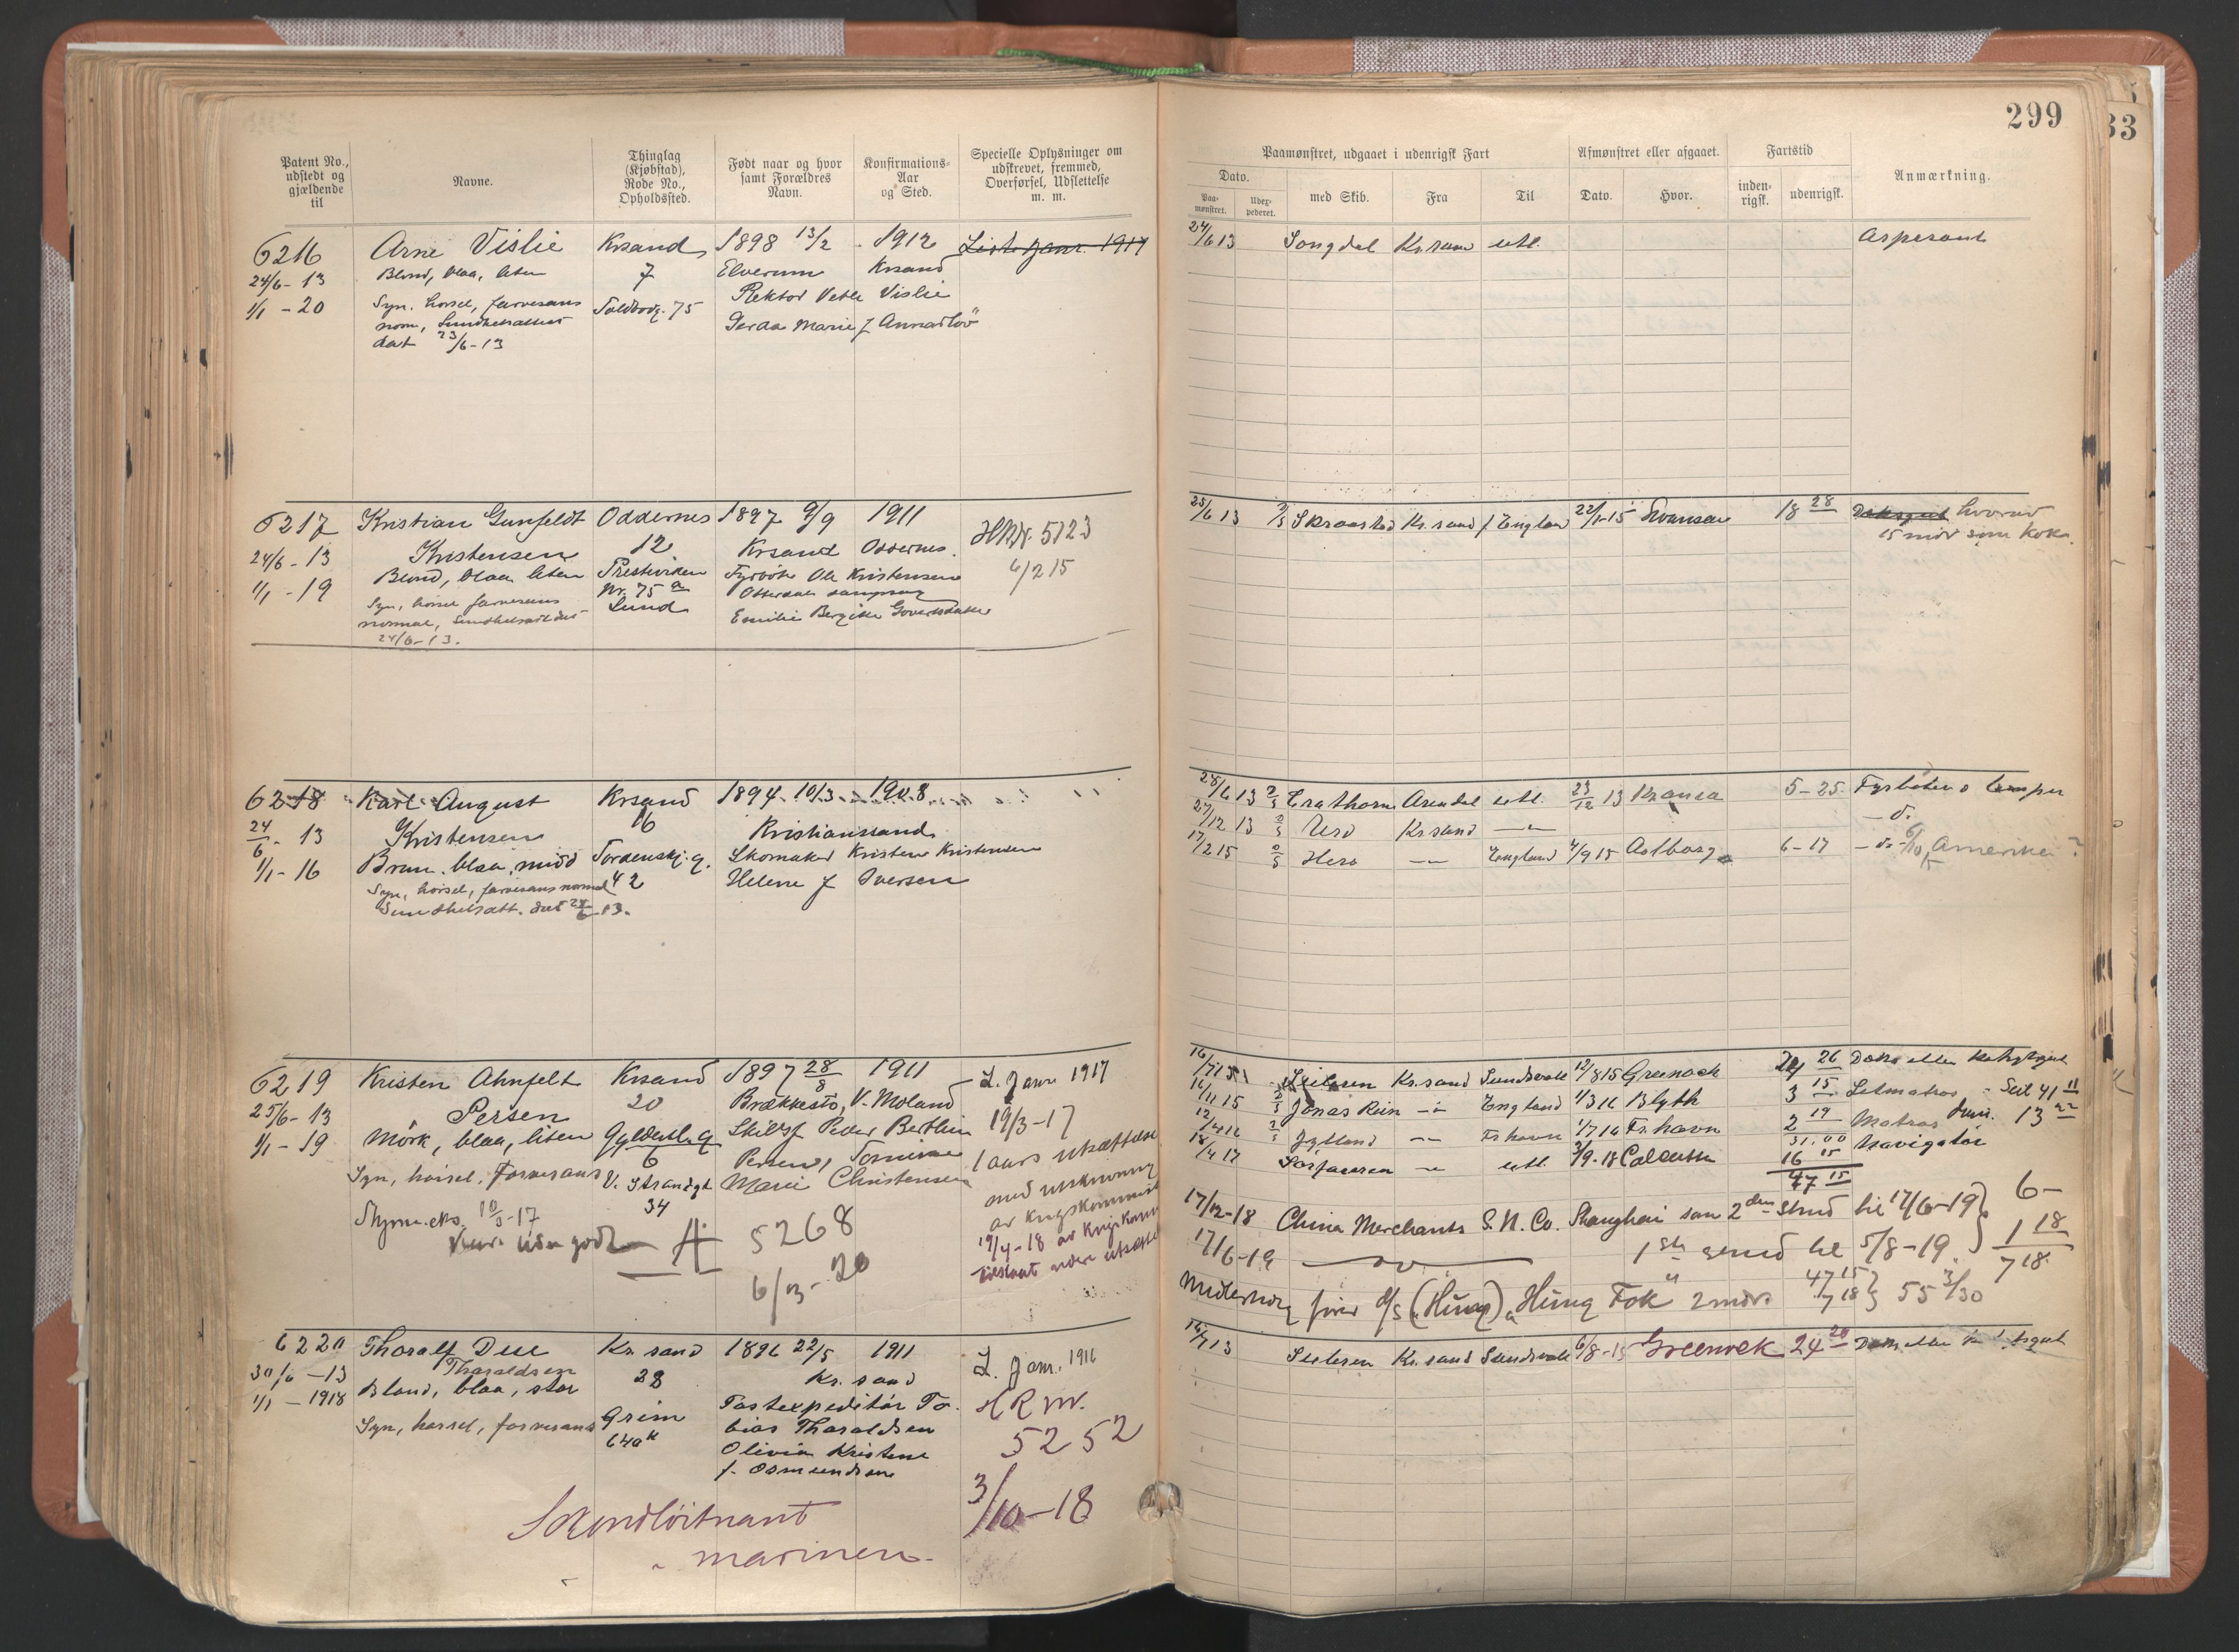 299
33
Patent No., udstedt og gjældende til
Navne.
Thinglag (Kjøbstad), Rode No., Opholdssted.
Født naar og hvor samt Forældres Navn.
Konfirmations-Aar og Sted.
Specielle Oplysninger om udskrevet, fremmed, Overførsel, Udslettelse m. m.
Paamønstret, udgaaet i udenrigsk Fart
Afmønstret eller afgaaet.
Fartstid
Anmærkning.
Dato.
med Skib.
Fra
Til
Dato.
Hvor.
inden-rigsk.
udenrigsk.
Paa-mønstret.
Uder-pederet.
6216 Arne Vislie Krsand 1898 13/2 1912 List. janr. 1917
24/6-13 Blond, blaa, liten 7 Elverum Krsand
1/1-20 Syn, hørsel, farvesans Toldbodg. 75 Rektor Vetle Vislie
norm, Sundhetsattest Gerda Marie f
dat 23/6-13
24/6 13 Songdal Kr.sand utl. Aspirant
6217 Kristian Gunfeldt Oddernes 1897 9/9 1911 HRW. 5123
24/6-13 Kristensen 12 Krsand Oddernes.
1/1-19 Blond, blaa liten Fyrbøter Ole Kristensen 6/2 15
Syn, hørsel farvesans Nr. 75 a
normal, Lund Emilie Bergitte
24/6-13.
25/6 13 Kr.sand f England 22/1-15 Swansea 18 28 Dæksgut hvorav
15 mdr som kok.
6218 Karl August Krsand 1894 10/3 1908
24/6-13 Kristensen 16 Kristianssand
1/1-16 Brun, blaa, midd Tordenskj. g. Skomaker Kristen Kristensen
Syn, hørsel, farvesans normal 42 Helene f Iversen
Sundhetsatt. dat 24/6-13.
28/6 13 Arendal utl. 23/12 13 5-25 Fyrbøter o lemper
27/12 13 Krsand — d.
17/2 15 Hero England 4/9 15 Aalborg 6-17 — d. Amerika?
6219 Kristen Ahnfelt Krsand 1897 28/8 1911 L. Janr 1917
25/6-13 Persen 20 Brækkestø, V. Moland 19/3-17
1/1-19 Mörk, blaa, liten Gyldenl. g Skibsf Peder Berthin
6 Persen, 1 aars utsættelse
Syn, hørsel, Farvesans V. Strandgt Marie Christensen med utskrivning
34 av krigskommis
Styrm.eks. 10/3-17
5268 19/4-18 av Krigskom
6/3-20
16/7 13 Kr.sand Sundsvall 12/8 15 Greenock 24 26 Dæks eller
16/11 15 Jonas Rein England 1/3 16 Blyth 3 15 Letmatros - Seil 41 11
12/4 16 Jylland Fr.havn 1/7 16 Fr.havn 2 19 Matros 13
31.00
18/4 17 utl. 3/9-18 Calcutta 16 15 Navigatör
47 15
17/12-18 China Merchants S.N.Co. Shanghai som 2den til 17/6-19 6-
17/6-19 1ste til 5/8-19. 1 18
7 18
Midlertidig fører d/s (Hung) "Hung Fok" 2 mdr. 47 15 7 18 55 3/30
6220 Thoralf Due Kr.sand 1896 22/5 1911 L. Janr. 1916
30/6-13 Tharaldsen 28 Kr.sand HRW.
1/1-1918 Blond, blaa, stor Postexpeditör To-
Syn, hørsel, farvesans Grim bias Tharaldsen 5252
64a Olivia Kristine
f. Osmundsen
3/10-18
Sekondløitnant
i marinen.
16/7 13 Kr.sand Sundsvall 6/8-15 Greenock 24 20 Dæks eller